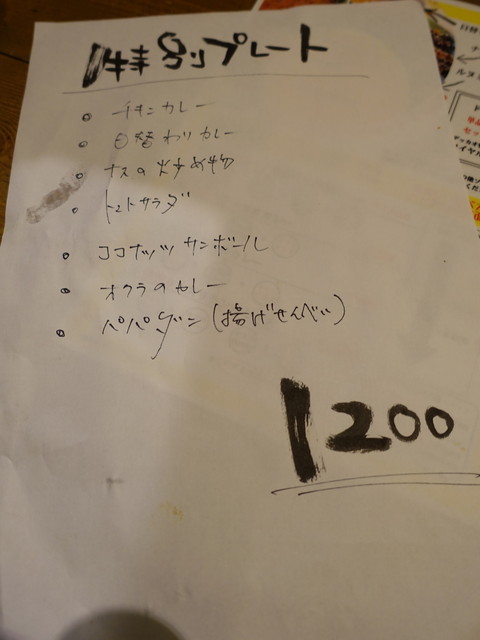 特別プレート
チキンカレー
日替わりカレー
ナスの炒め物
トマトサラダ
ココナッツサンボール
オクラのカレー
パパダン(揚げせんべい)
1200